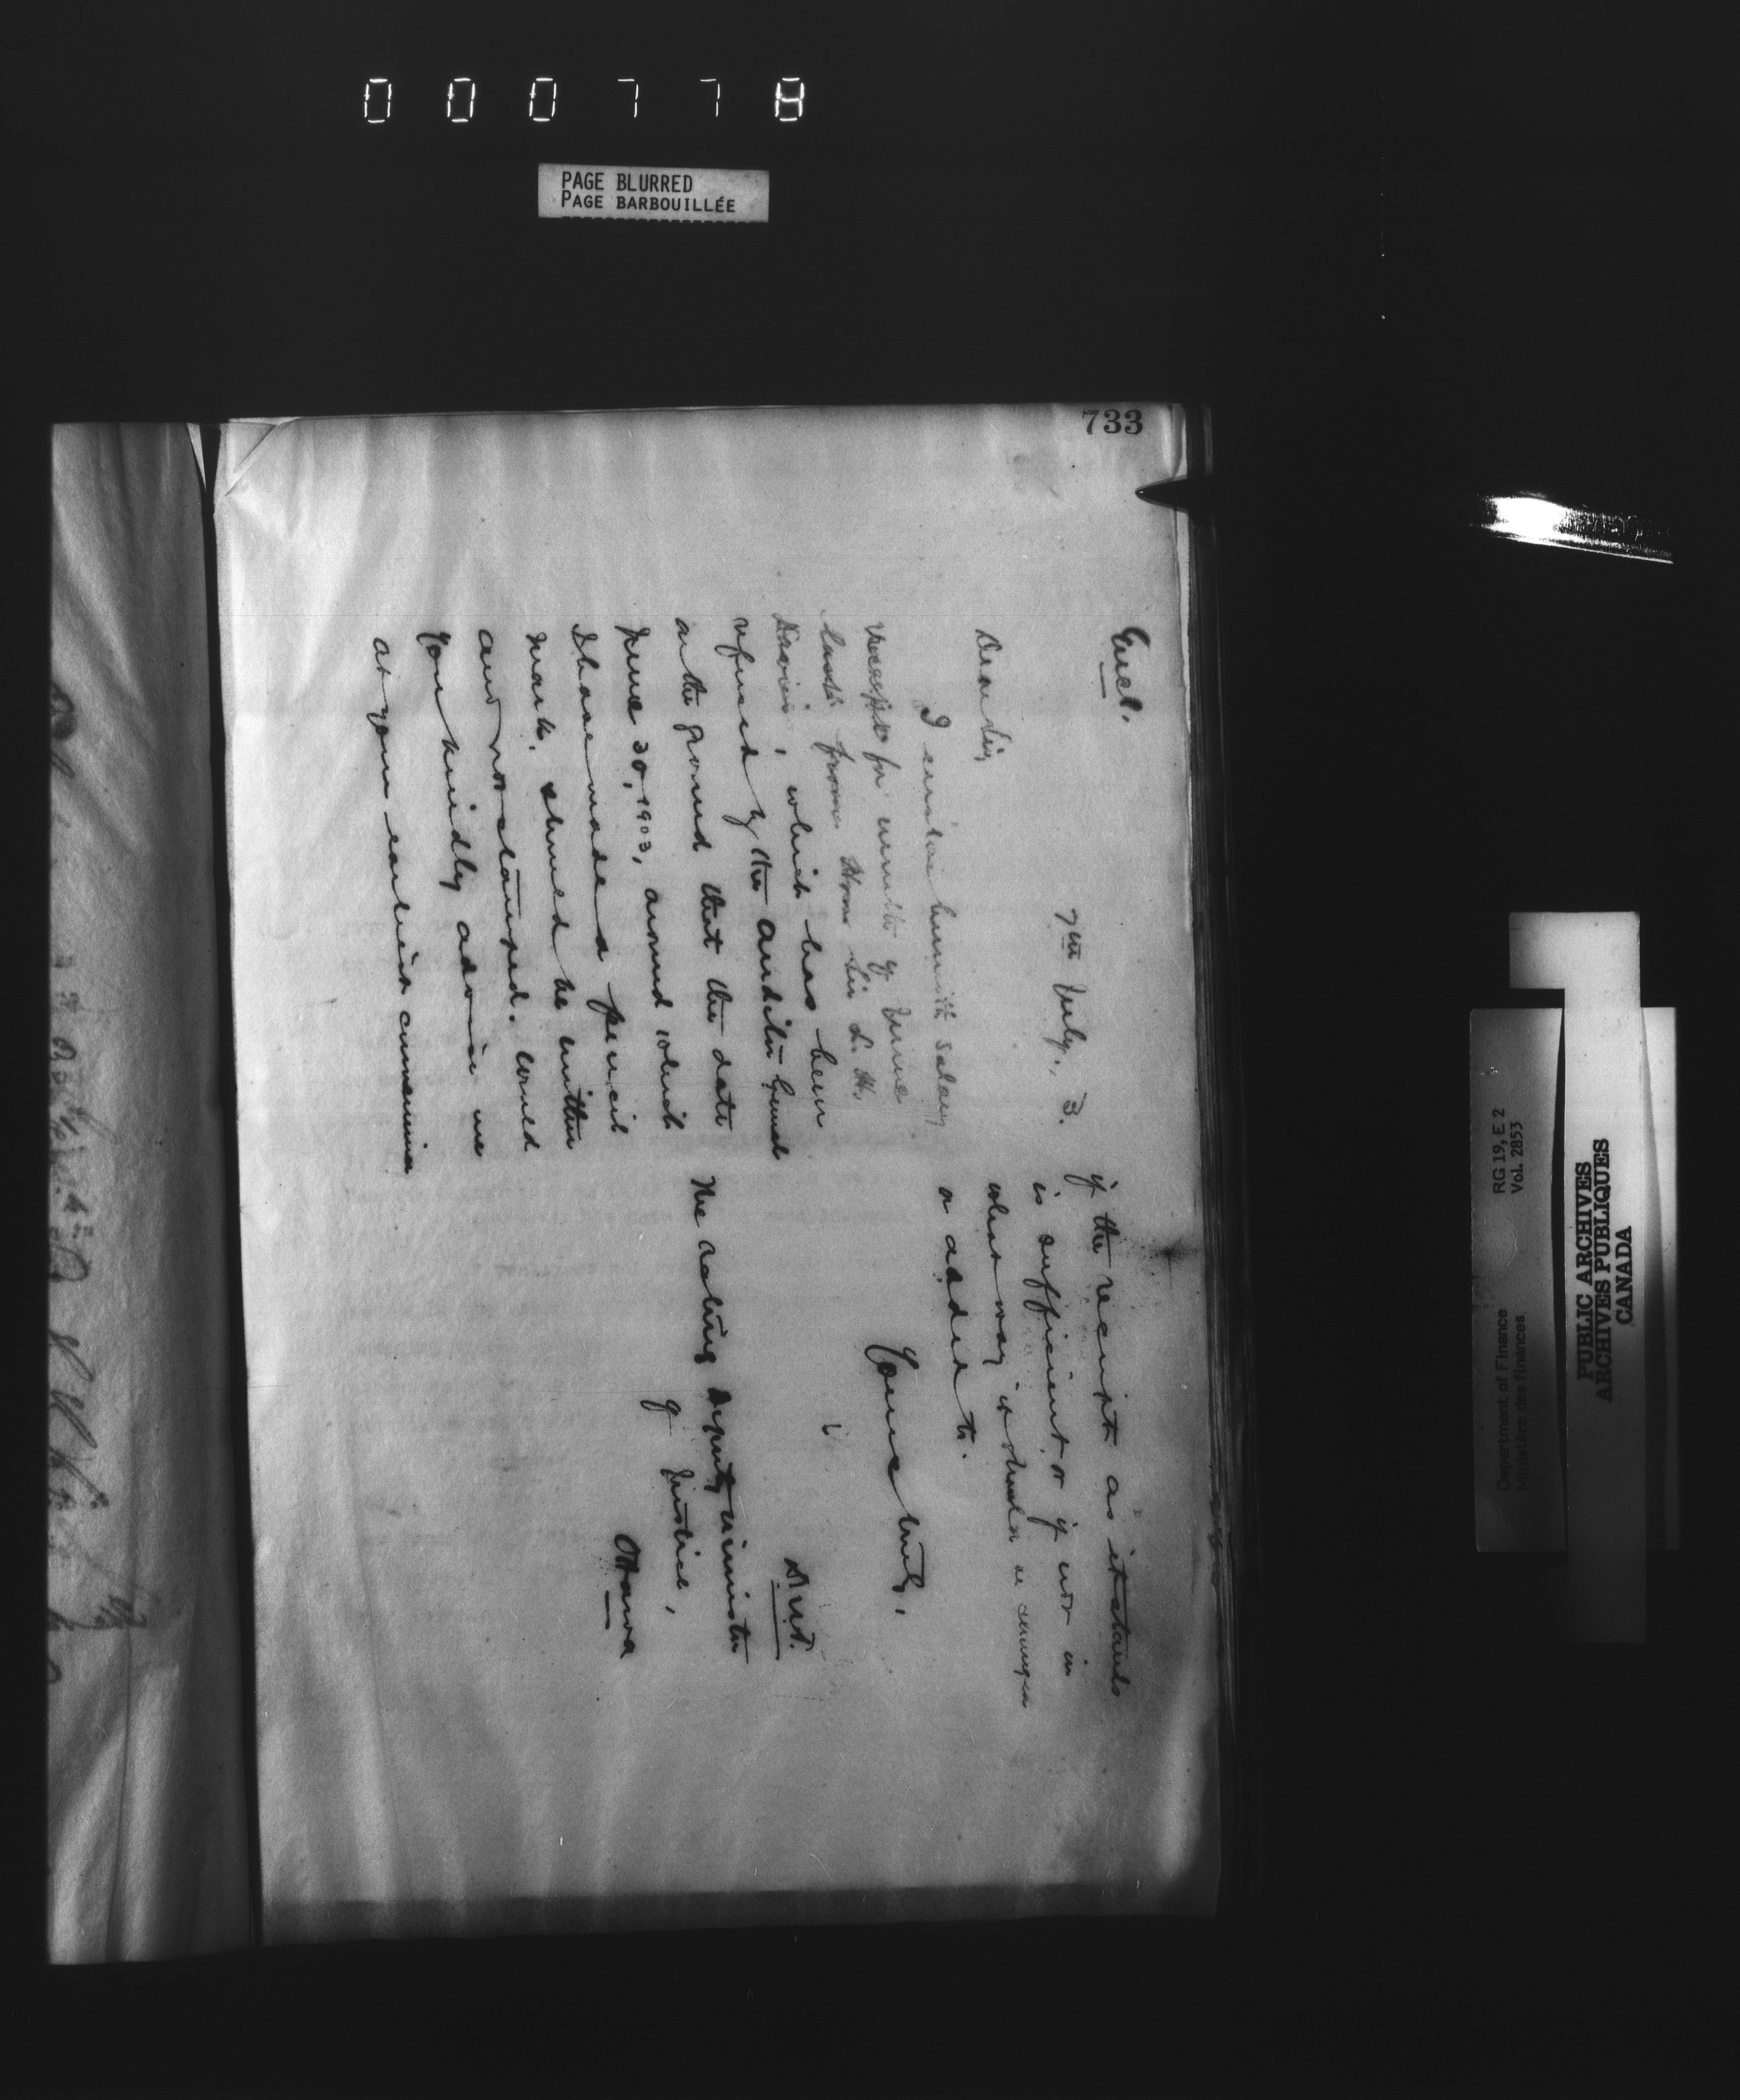 000778
PAGE BLURRED
PAGE BARBOUILLÉE
733
Encl.
7th July, 3.
Dear Sir,
I enclose herewith salary
receipt for month of June
last from Hon Sir L. H.
Davies, which has been
refused by the Auditor General
on the ground that the date
June 30, 1903, around which
I have made a pencil
mark, should be written
and not stamped. Would
you kindly advise me
at your earliest convenience
if the receipt as it stands
is sufficient or if not in
what way it should be changed
or added to.
Yours truly,
The Acting Deputy Minister
of Justice,
Ottawa
RG 19, E 2
Vol. 2853
Department of Finance
Ministère des finances
PUBLIC ARCHIVES
ARCHIVES PUBLIQUES
CANADA